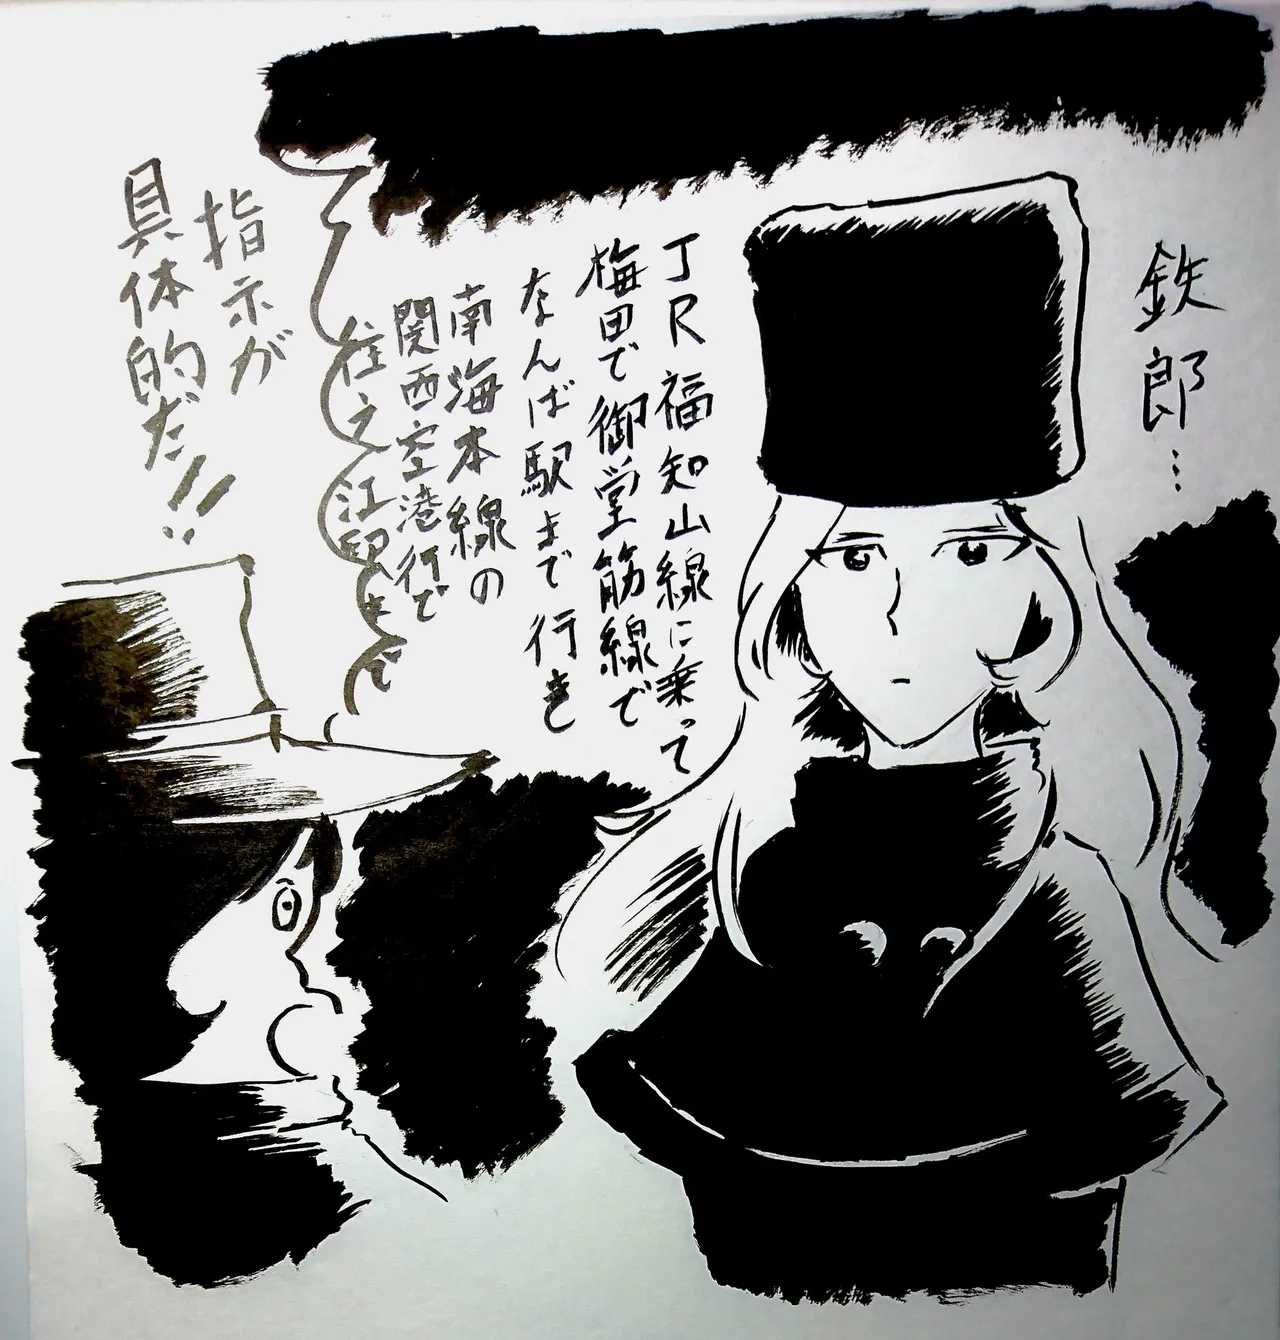 鉄郎…
JR福知山線に乗って
梅田で御堂筋線で
なんば駅まで行き
南海本線の
関西空港行で
住之江駅まで
指示が
具体的だ!!